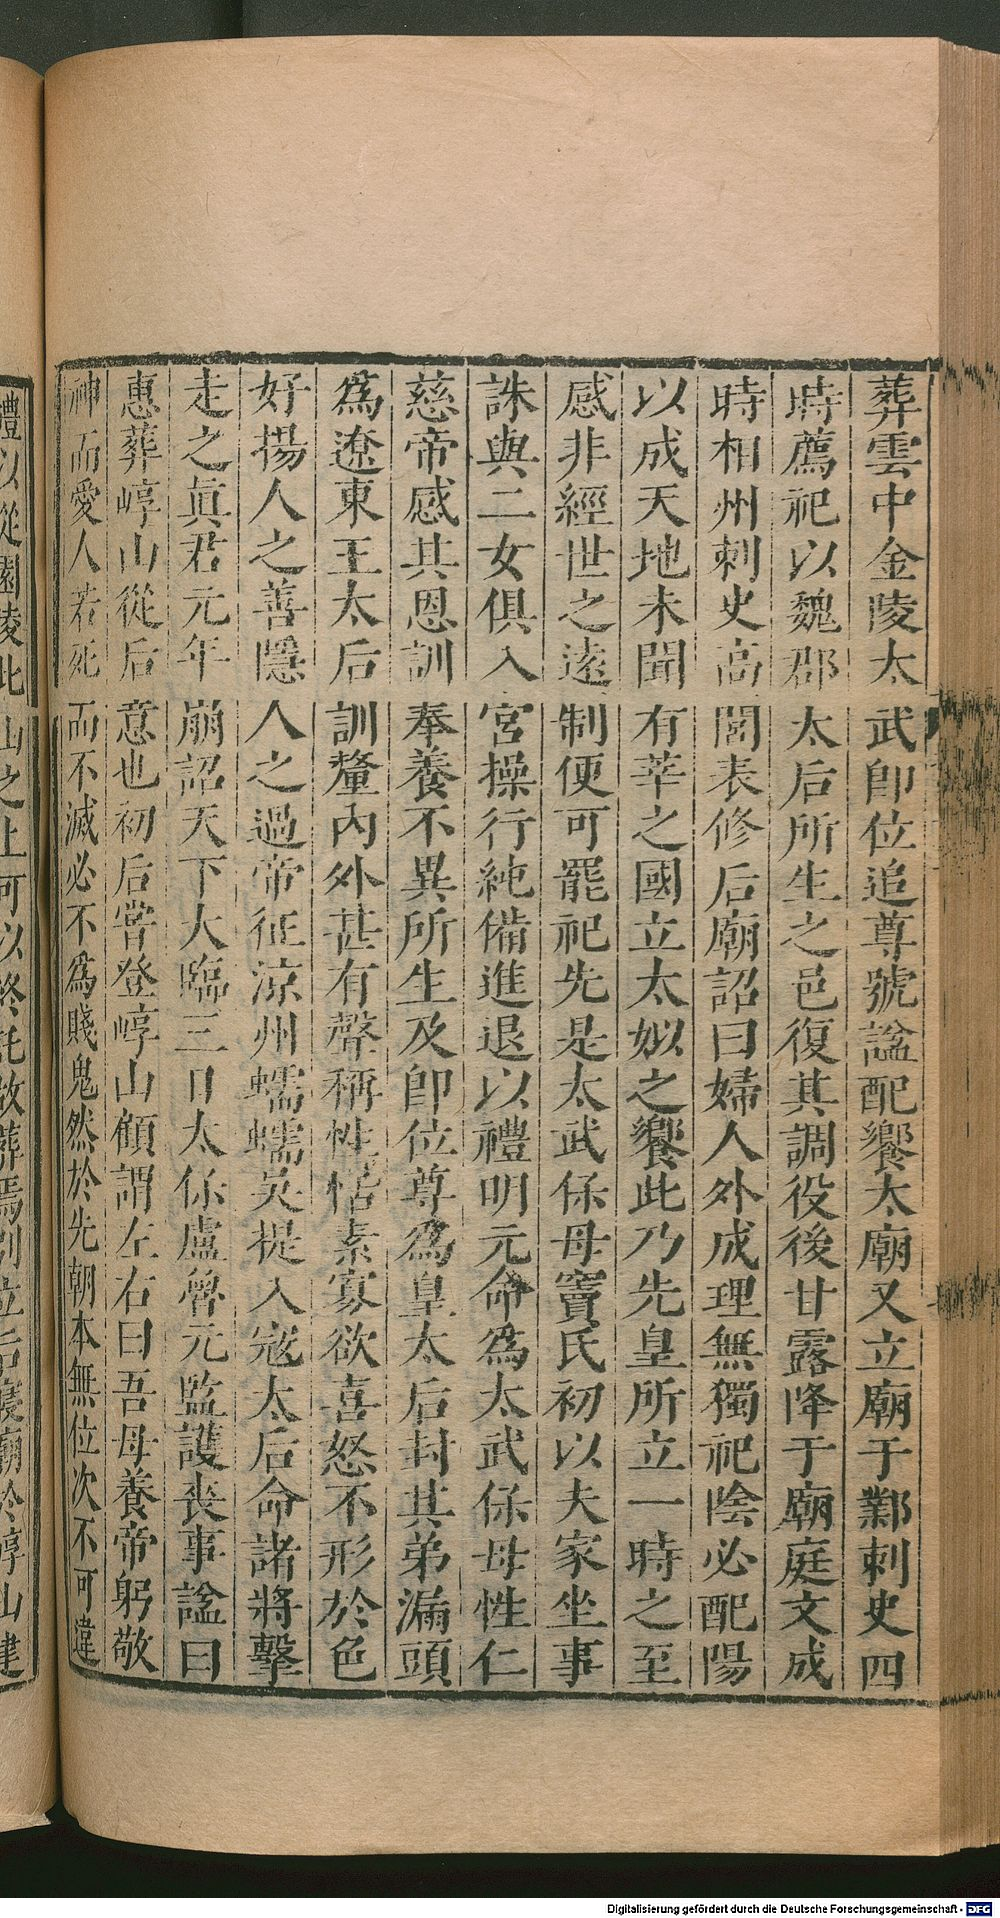 葬雲中金陵太武即位追尊號謚配饗太廟又立廟于鄴刺史四
時薦祀以魏郡太后所生之邑復其調役後甘露降于廟庭文成
時相州刺史高閭表修后廟詔曰婦人外成理無獨祀陰必配陽
以成天地未聞有莘之國立太姒之饗此乃先皇所立一時之至
感非經世之遠制便可罷祀先是太武保母竇氏初以夫家坐事
誅與二女俱入宮操行純備進退以禮明元命為太武保母性仁
慈帝感其恩訓奉養不異所生及即位尊為皇太后封其弟漏頭
為遼東王太后訓釐內外甚有聲稱性恬素寡欲喜怒不形於色
好揚人之善隱人之過帝征涼州蠕蠕吳提入寇太后命諸將擊
走之真君元年崩詔天下大臨三日太保盧魯元監護喪事謚曰
惠葬崞山從后意也初后嘗登崞山顧謂左右曰吾母養帝躬敬
神而愛人若死而不滅必不為賤鬼然於先朝本無位次不可違
禮以從園陵此山之上可以終託故葬焉別立后寢廟於崞山建
Digitalisierung gefördert durch die Deutsche Forschungsgemeinschaft - DFG